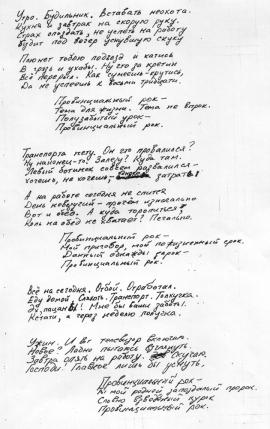 Утро. Будильник. Вставать неохота.
Кухня и завтрак на скорую руку.
Страх опоздать, не успеть на работу
Будит под вечер уснувшую скуку

Плюнет тобою подъезд и катись
В грязь и ухабы. Ну что за кретин
Всё перерыл. Как сумеешь - крутись,
Да не успеешь к восьми тридцати.

Провинциальный рок -
Тема для жизни. Тема не впрок.
Полузабытый урок -
Провинциальный рок.

Транспорта нету. Он что провалился?
Ну наконец-то! Залезу! Куда там.
Левый ботинок совсем развалился -
Хочешь, не хочешь, затраты!

А на работе сегодня не спится
День невезучий - причём изначально
Вот и обед. А куда торопиться?
Коль на обед не хватает! Печально.

Провинциальный рок -
Мой приговор, мой пожизненный срок.
Данный однажды зарок -
Провинциальный рок.

Всё на сегодня. Отбой. Отработал.
Еду домой. Слякоть. Транспорт. Толкучка.
Эх, пацаны! Мне бы ваши заботы!
Кстати, а через неделю получка.

Ужин. И вот телевизор включил.
Новое? Ладно пытаюсь взглянуть.
Завтра опять на работу. скучаю,
Господи! Главное лишь бы уснуть.

Провинциальный рок -
мой родной запоздалый пророк.
Словно взведённый курок
Провинциальный рок.